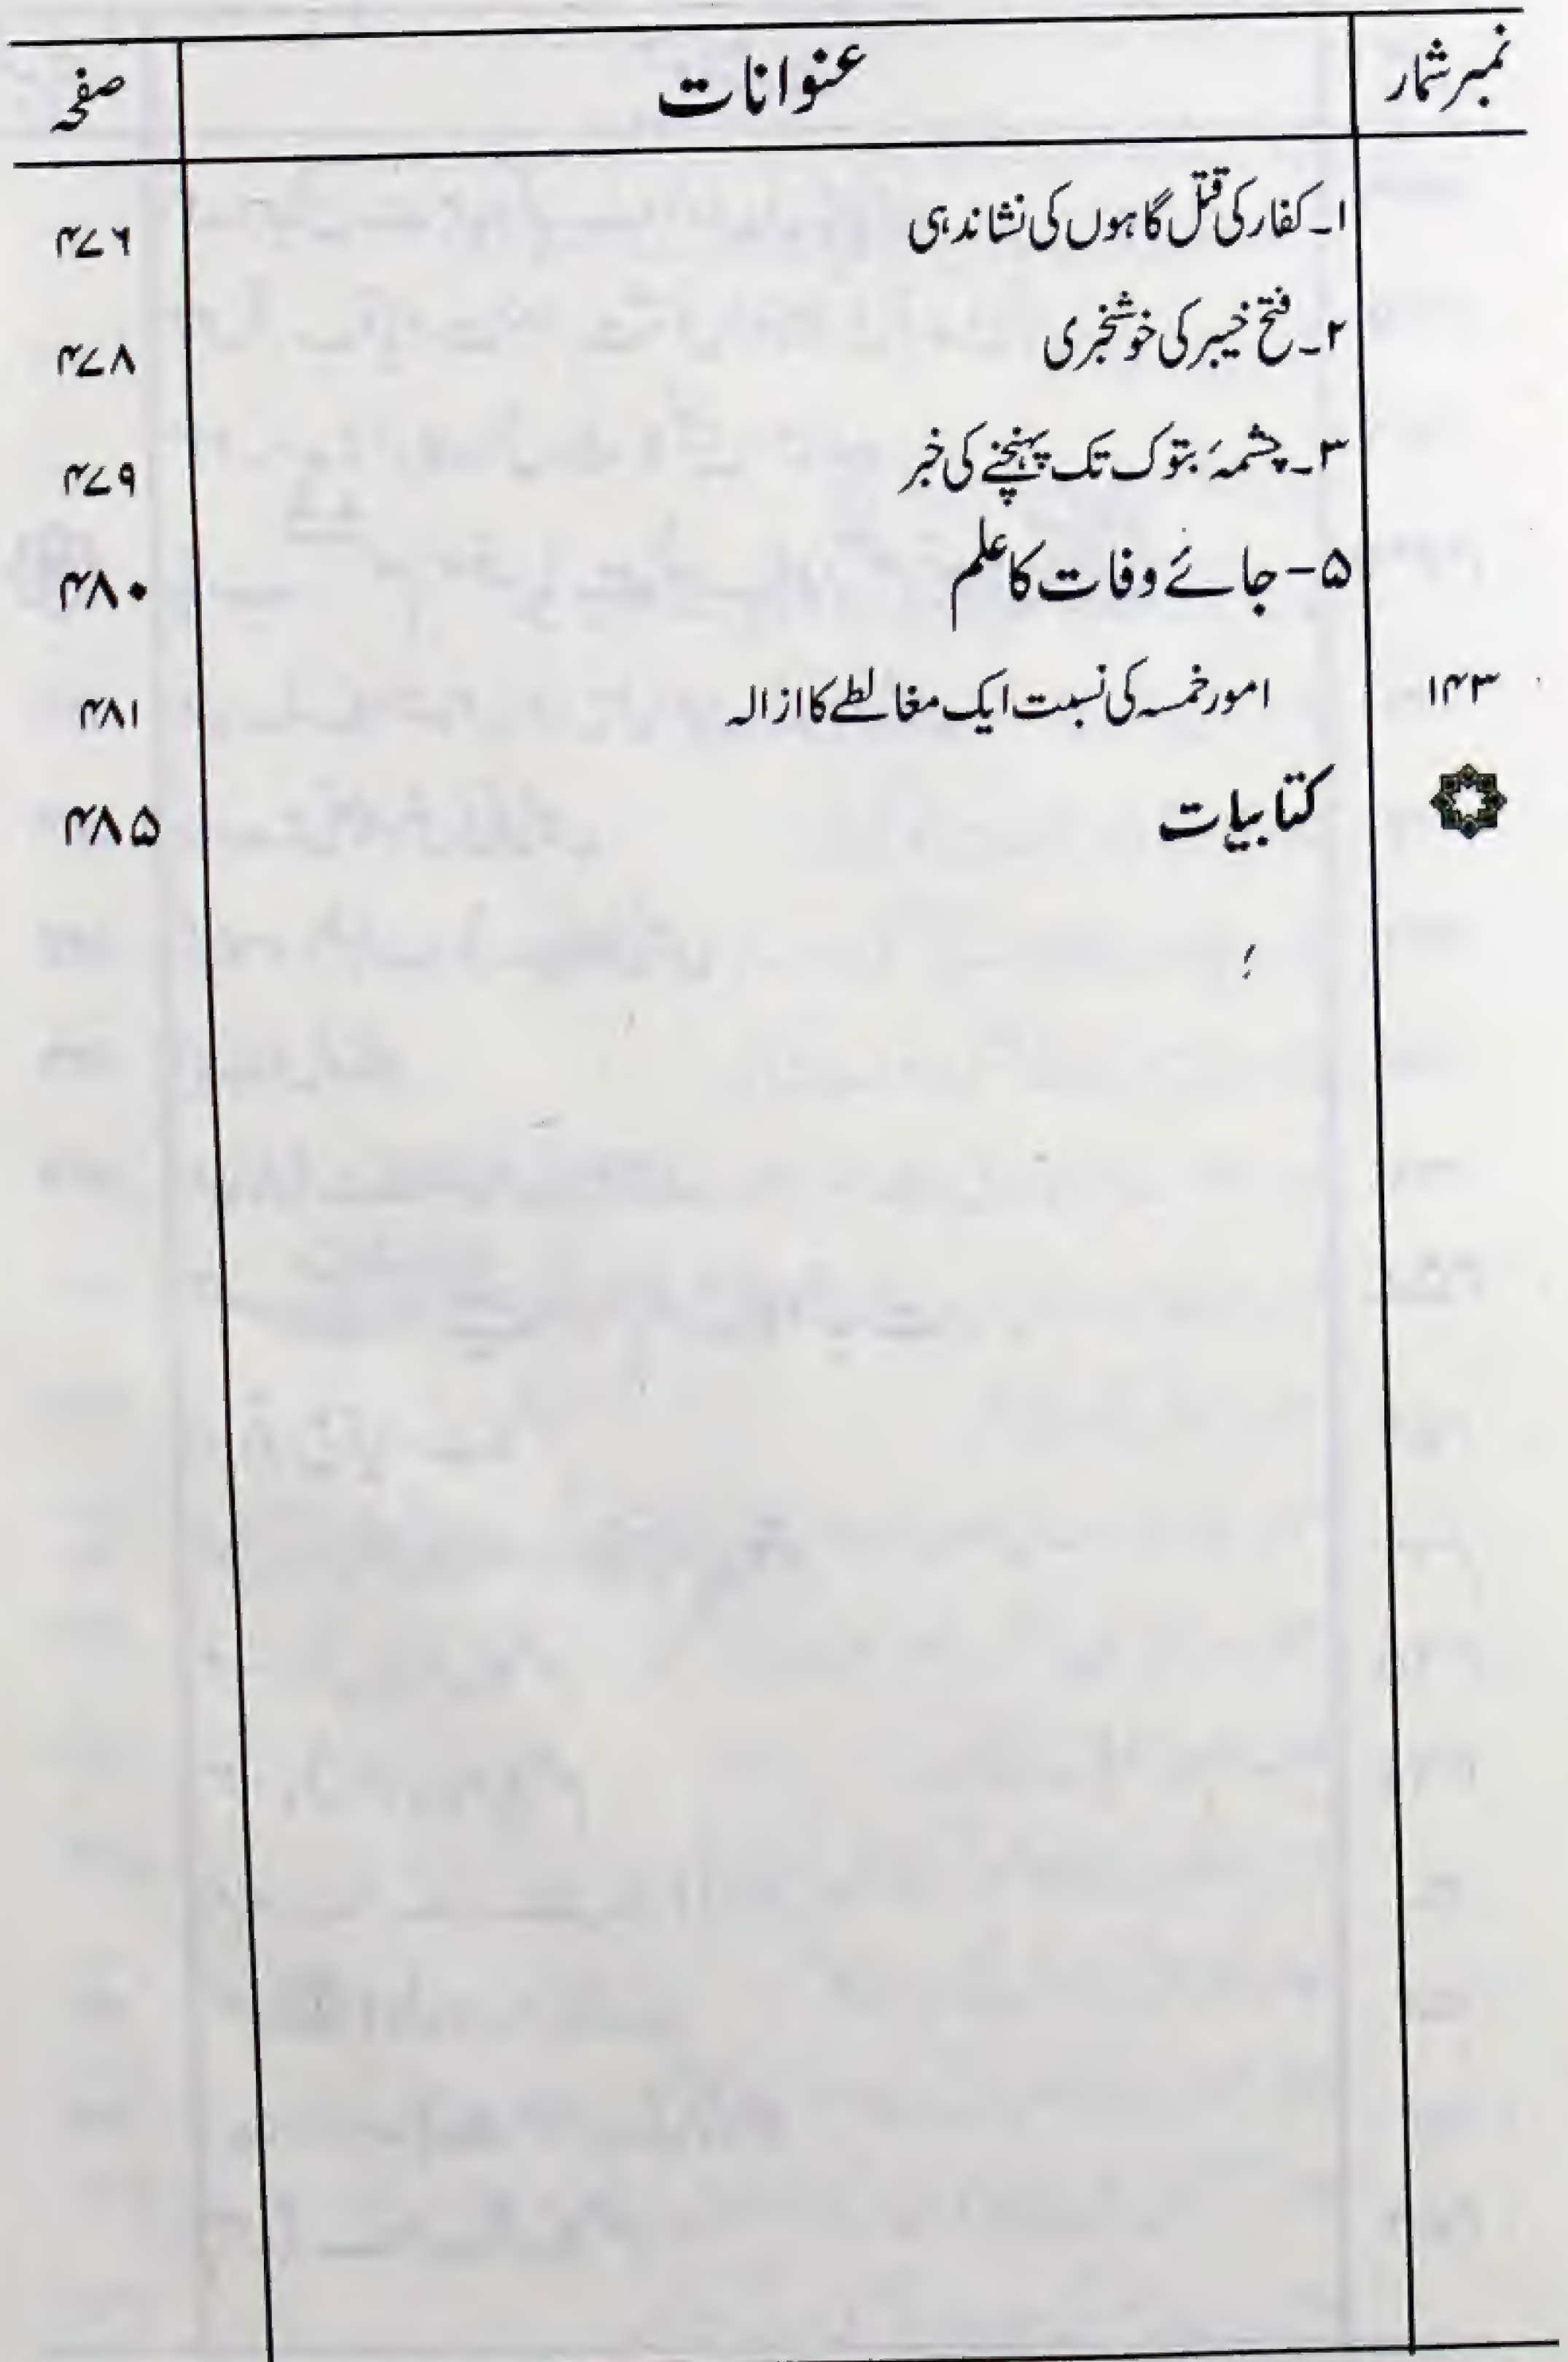 نمبر شمار عنوانات صفحہ
۱۔ کفار کی قتل گاہوں کی نشاندہی ۴۷۶
۲۔ فتح خیبر کی خوشخبری ۴۷۸
۳۔ چشمۂ تبوک تک پہنچنے کی خبر ۴۷۹
۵- جائے وفات کا علم ۴۸۰
۱۴۳ امور خمسہ کی نسبت ایک مغالطے کا ازالہ ۴۸۱
کتابیات ۴۸۵